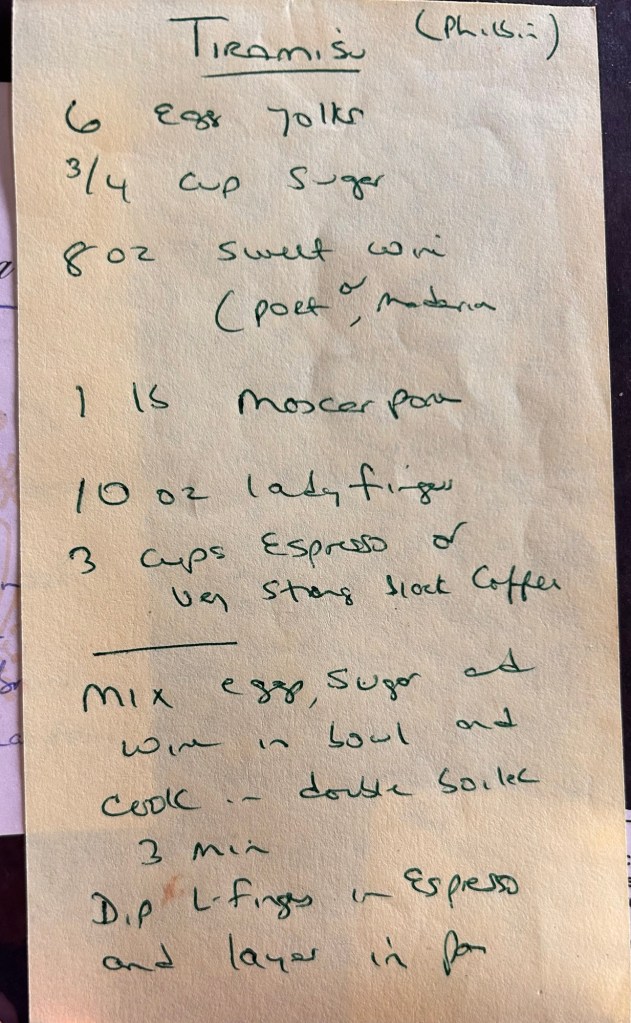 TIRAMISU
6 Egg yolks
3/4 cup Sugar
8 oz sweet wine
(port or, Maderia
1 lb Moscarpone
10 oz lady fingers
3 cups Espresso or
very strong black Coffee
MIX eggs, Sugar and
wine in bowl and
cook in double boiler
3 min
Dip L-fingers in Espresso
and layer in pan